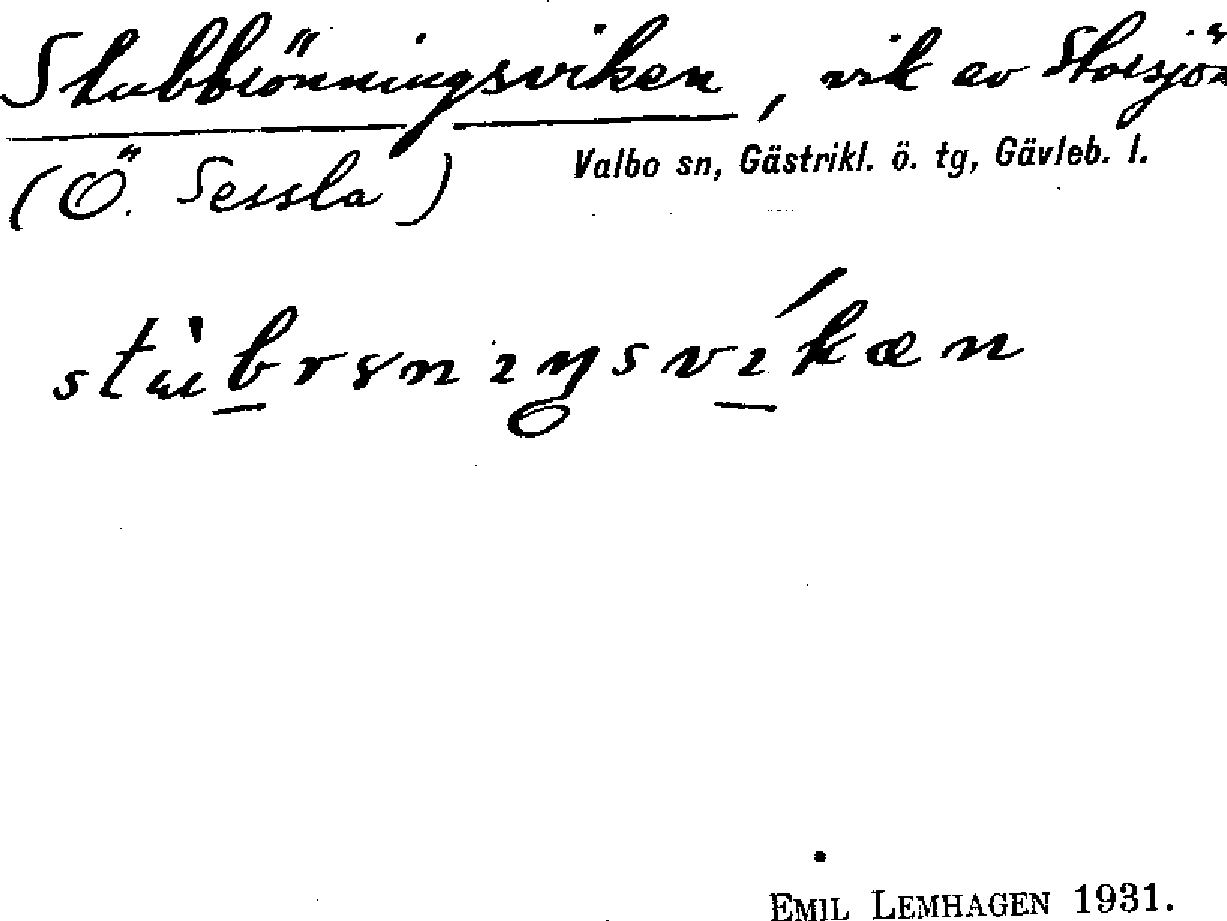 Stubbrönningsviken, vik av Storsjön
(Ö. Sessla) Valbo sn, Gästrikl. ö. tg, Gävleb. l.
EMIL LEMHAGEN 1931.